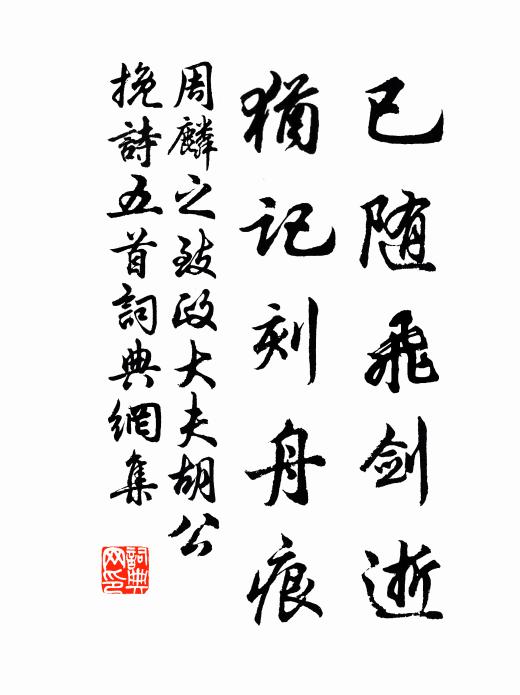 已随飛剑逝
猶记刻舟痕
周麟之致政大夫胡公
挽詩五首詞典網集
詞典
网印